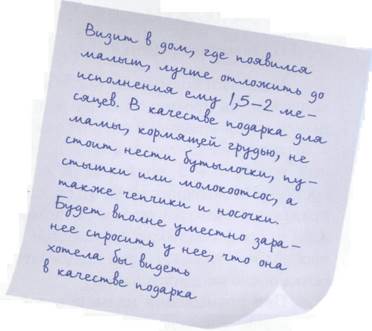 Визит в дом, где появился
малыш, лучше отложить до
исполнения ему 1,5–2 ме-
сяцев. В качестве подарка для
мамы, кормящей грудью, не
стоит нести бутылочки, пу-
стышки или молокоотсос, а
также чепчики и носочки.
Будет вполне уместно зара-
нее спросить у нее, что она
хотела бы видеть
в качестве подарка